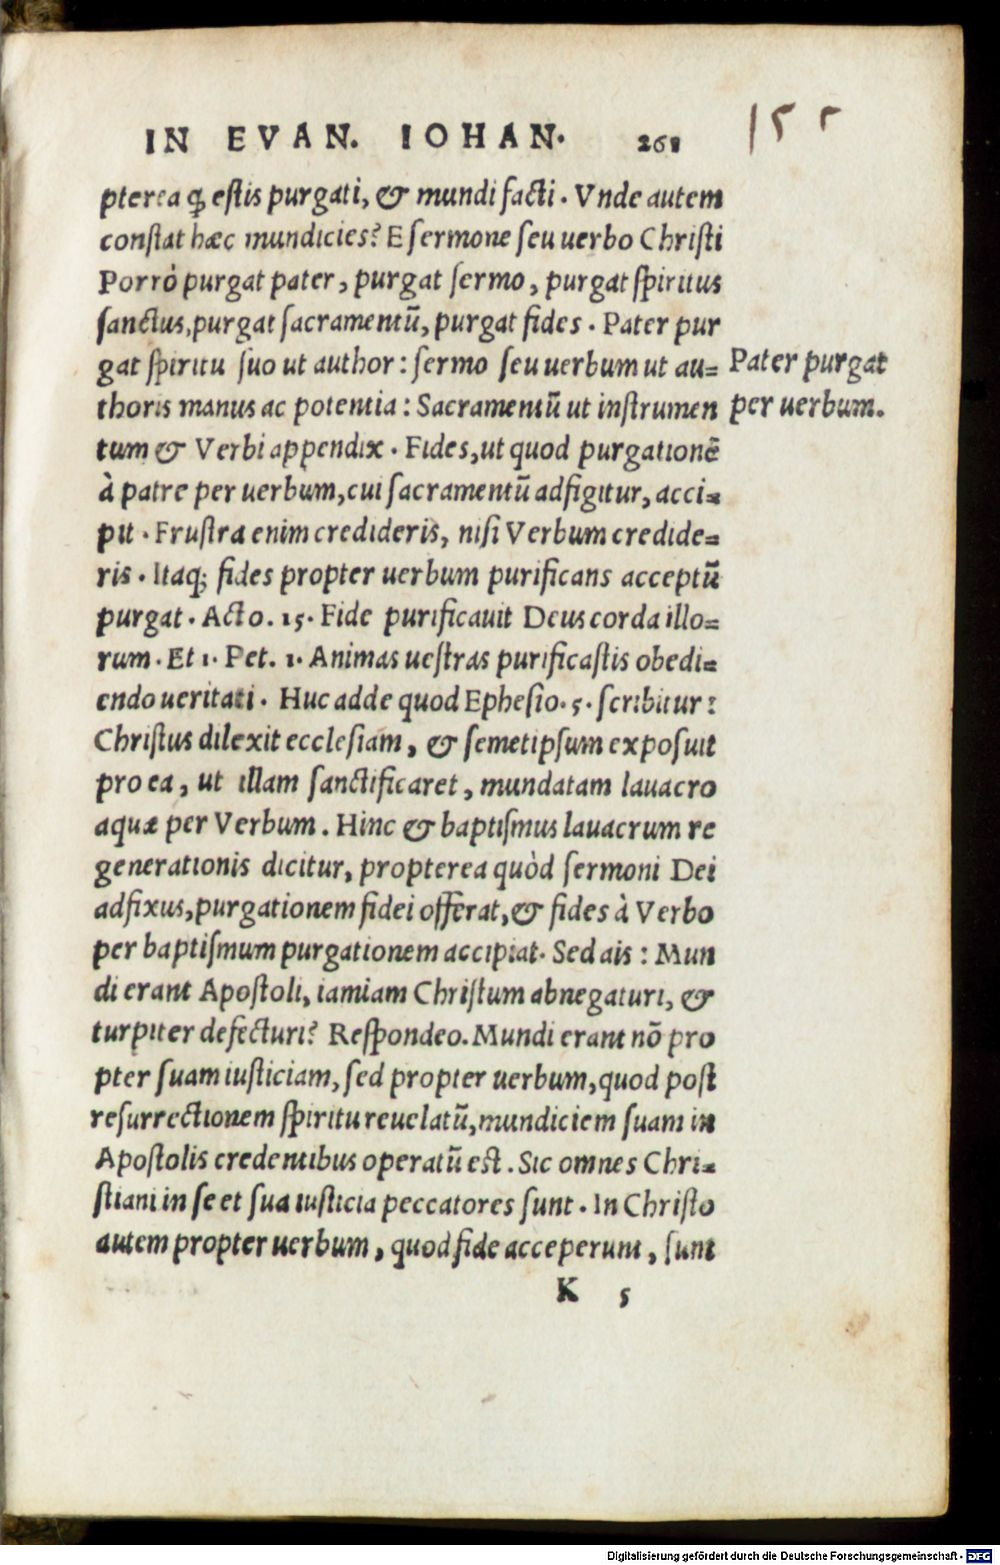 IN EVAN. IOHAN. 261
155
pterea ꝙ estis purgati, & mundi facti. Vnde autem
constat hæc mundicies? E sermone seu uerbo Christi
Porrò purgat pater, purgat sermo, purgat spiritus
sanctus, purgat sacramentū, purgat fides. Pater pur
gat spiritu suo ut author: sermo seu uerbum ut au=
thoris manus ac potentia: Sacramentū ut instrumen
tum & Verbi appendix. Fides, ut quod purgationē
à patre per uerbum, cui sacramentū adfigitur, acci=
pit. Frustra enim credideris, nisi Verbum credide=
ris. Itaq; fides propter uerbum purificans acceptū
purgat. Acto. 15. Fide purificauit Deus corda illo=
rum. Et 1. Pet. 1. Animas uestras purificastis obedi=
endo ueritati. Huc adde quod Ephesio. 5. scribitur:
Christus dilexit ecclesiam, & semetipsum exposuit
pro ea, ut illam sanctificaret, mundatam lauacro
aquæ per Verbum. Hinc & baptismus lauacrum re
generationis dicitur, propterea quòd sermoni Dei
adfixus, purgationem fidei offerat, & fides à Verbo
per baptismum purgationem accipiat. Sed ais: Mun
di erant Apostoli, iamiam Christum abnegaturi, &
turpiter defecturi? Respondeo. Mundi erant nō pro
pter suam iusticiam, sed propter uerbum, quod post
resurrectionem spiritu reuelatū, mundiciem suam in
Apostolis credentibus operatū est. Sic omnes Chri=
stiani in se et sua iusticia peccatores sunt. In Christo
autem propter uerbum, quod fide acceperunt, sunt
K 5
Pater purgat
per uerbum.
Digitalisierung gefördert durch die Deutsche Forschungsgemeinschaft - DFG